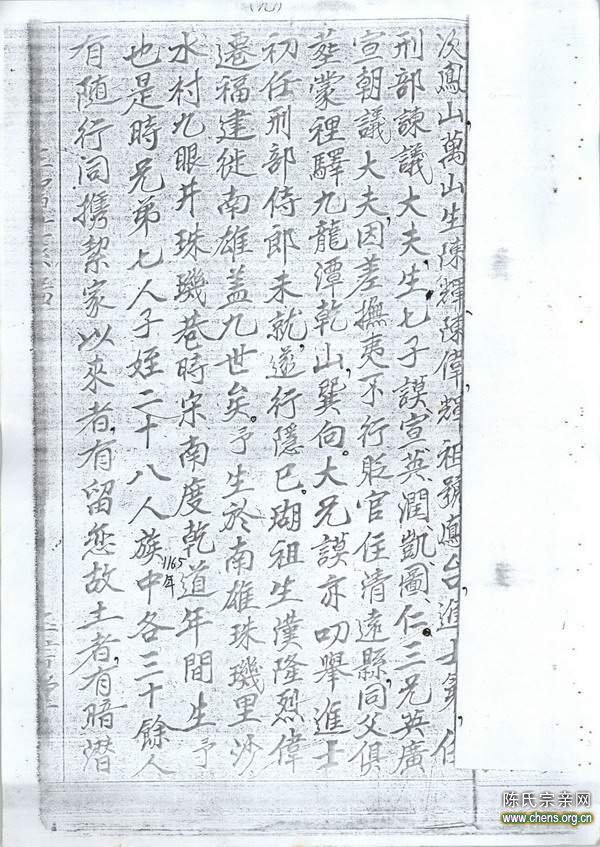 (九)
次鳳山萬山生陳輝,陳偉,輝祖號鳳台,進士第,任
刑部諫議大夫,生七子謨、宣、英、潤、凱、圖、仁。三兄英廣
宣朝議大夫,因差撫夷不行貶官任清遠縣,同父俱
塟蒙裡驛九龍潭乾山,巽向。大兄謨亦叨舉進士
初任刑部侍郎未就,遂行隱巳。瑚祖生漢隆烈偉
遷福建徙南雄蓋九世矣。予生於南雄珠璣里沙
水村九眼井珠璣巷時宋南度乾道年間生予
1165年
也是時兄弟七人子姪二十八人族中各三十餘人
有随行同携絜家以來者,有留恋故土者,有暗潛
陈氏宗亲网
www.chens.org.cn